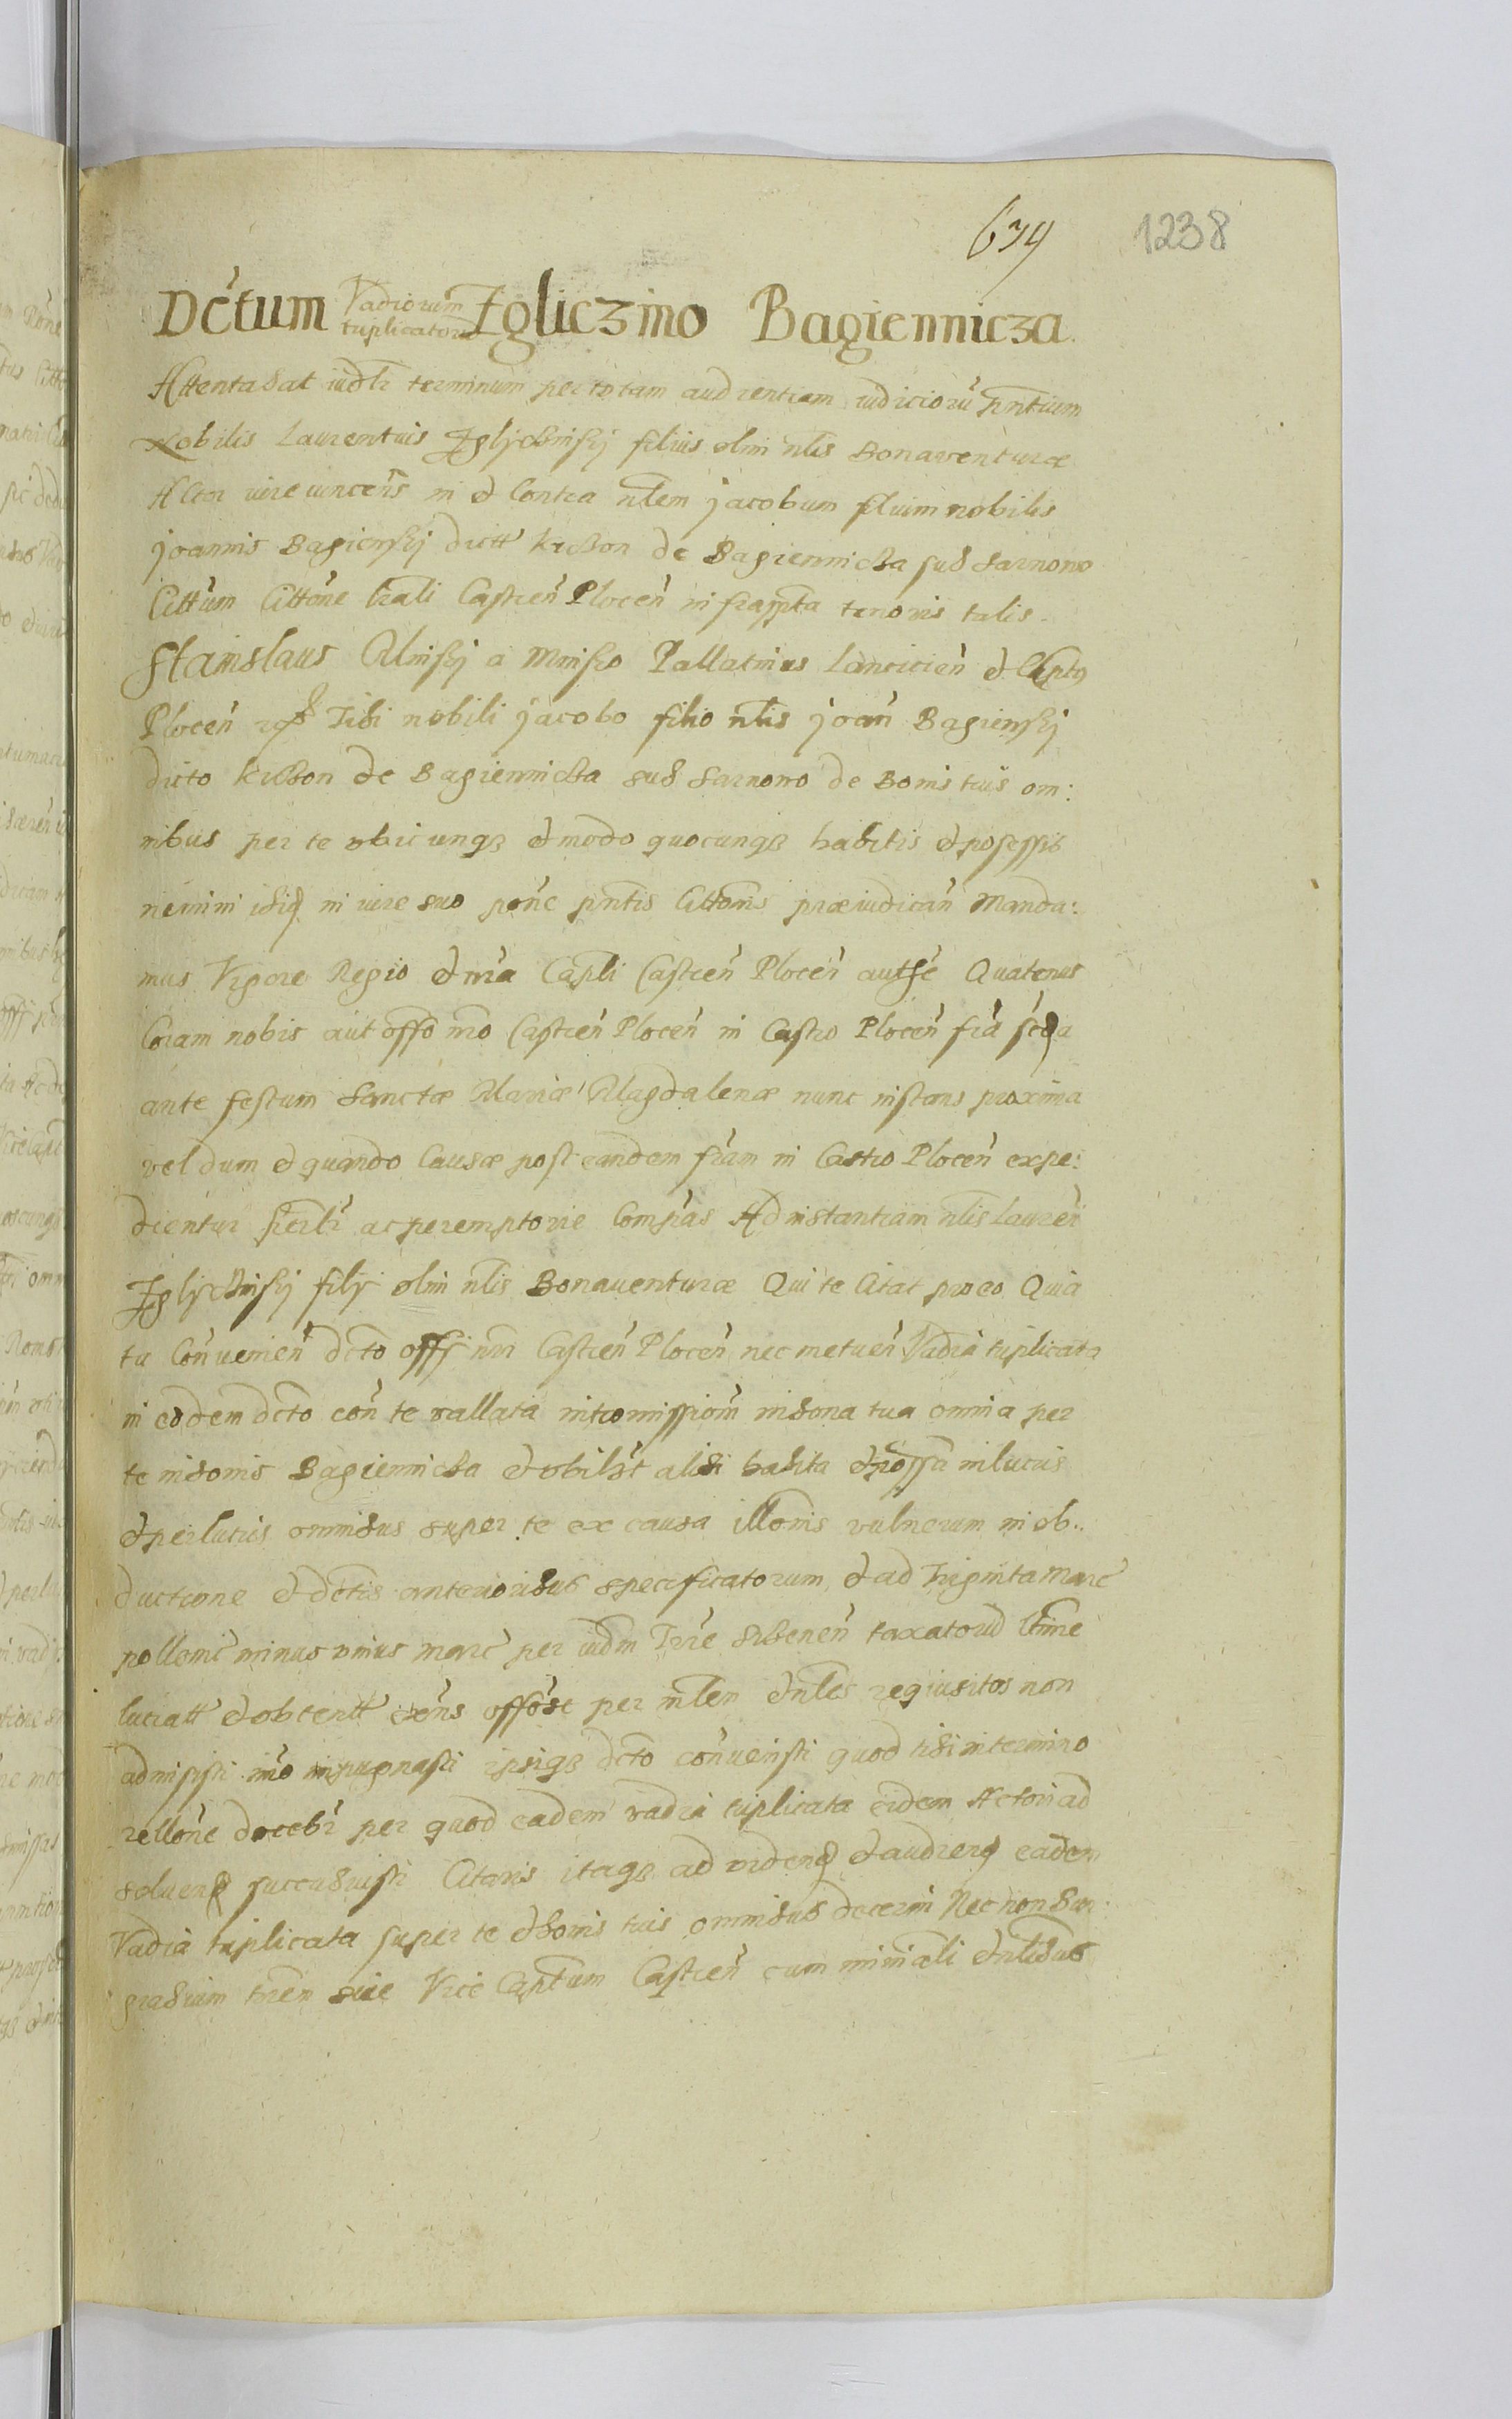 639 1238
Dc̃tum Vadiorum triplicatorum Igliczino Bagiennicza.
Attentabat iudłr terminum per totam audientiam iudiciorũ pñtium
Nobilis Laurentius Iglyczinskj filius olim nłis Bonaventuræ
Actor iure vincens in et Contra nłem jacobum filium nobilis
joannis Bagienskj dictt kiczon de Bagiennicza sub Sarnowo
Cittum Cittõne łrali Castreñ Ploceñ infrascpta tenoris talis.
Stanislaus Minskj a Minsko Pallatinus Lancicieñ et Captus
Ploceñ Tibi nobili jacobo filio nłis joañ Bagienskj
dicto kiczon de Bagiennicza sub Sarnowo de Bonis tuis om:
nibus per te ubicunqȝ et modo quocunqȝ habitis et possessis
nemini ibiqȝ in iure suo põne pñtis Cittõnis præiudicañ Manda:
mus Vigore Regio et nr̃a Capłi Castreñ Ploceñ autȟe Quatenus
Coram nobis aut offo nrõ Castreñ Ploceñ in Castro Ploceñ frĩa scda
ante festum Sanctæ Mariæ Magdalenæ nunc instans proxima
vel dum et quando Causæ post eandem frĩam in Castro Ploceñ expe:
dientur ac peremptorie Compãs Ad instantiam nłis Laureñ
Iglyczinskj filij olim nłis Bonaventuræ Qui te Citat pro eo Quia
tu Conuenieñ dcto offj nrĩ Castreñ Ploceñ nec metueñ Vadia triplicata
in eodem dcto coñ te vallata intromissionẽ in bona tua omnia per
te in bonis Bagiennicza et ubilibet alibi habita et possessa in lucris
et per lucris omnibus super te ex causa illõnis vulnerum in ob..
ductione et dctis anterioribus specificatorum et ad Triginta marc
pollonic̃ minus unius marc̃ per iudm Trre taxatord ltime
lucratt et obtentt per nłem et nłes requisitos non
admisisti imo impugnasti ipsiqȝ dcto conuenisti quod tibi in termino
rellõne docebr per quod eadem vadia triplicata eidem Actori ad
soluend succubuisti Citaris itaqȝ ad videnđ et audiend eadem
Vadia triplicata super te et bonis tuis omnibus decerni Nec non Bur:
grabium trem siue Vice Captum Castreñ cum miniałi et nłibus